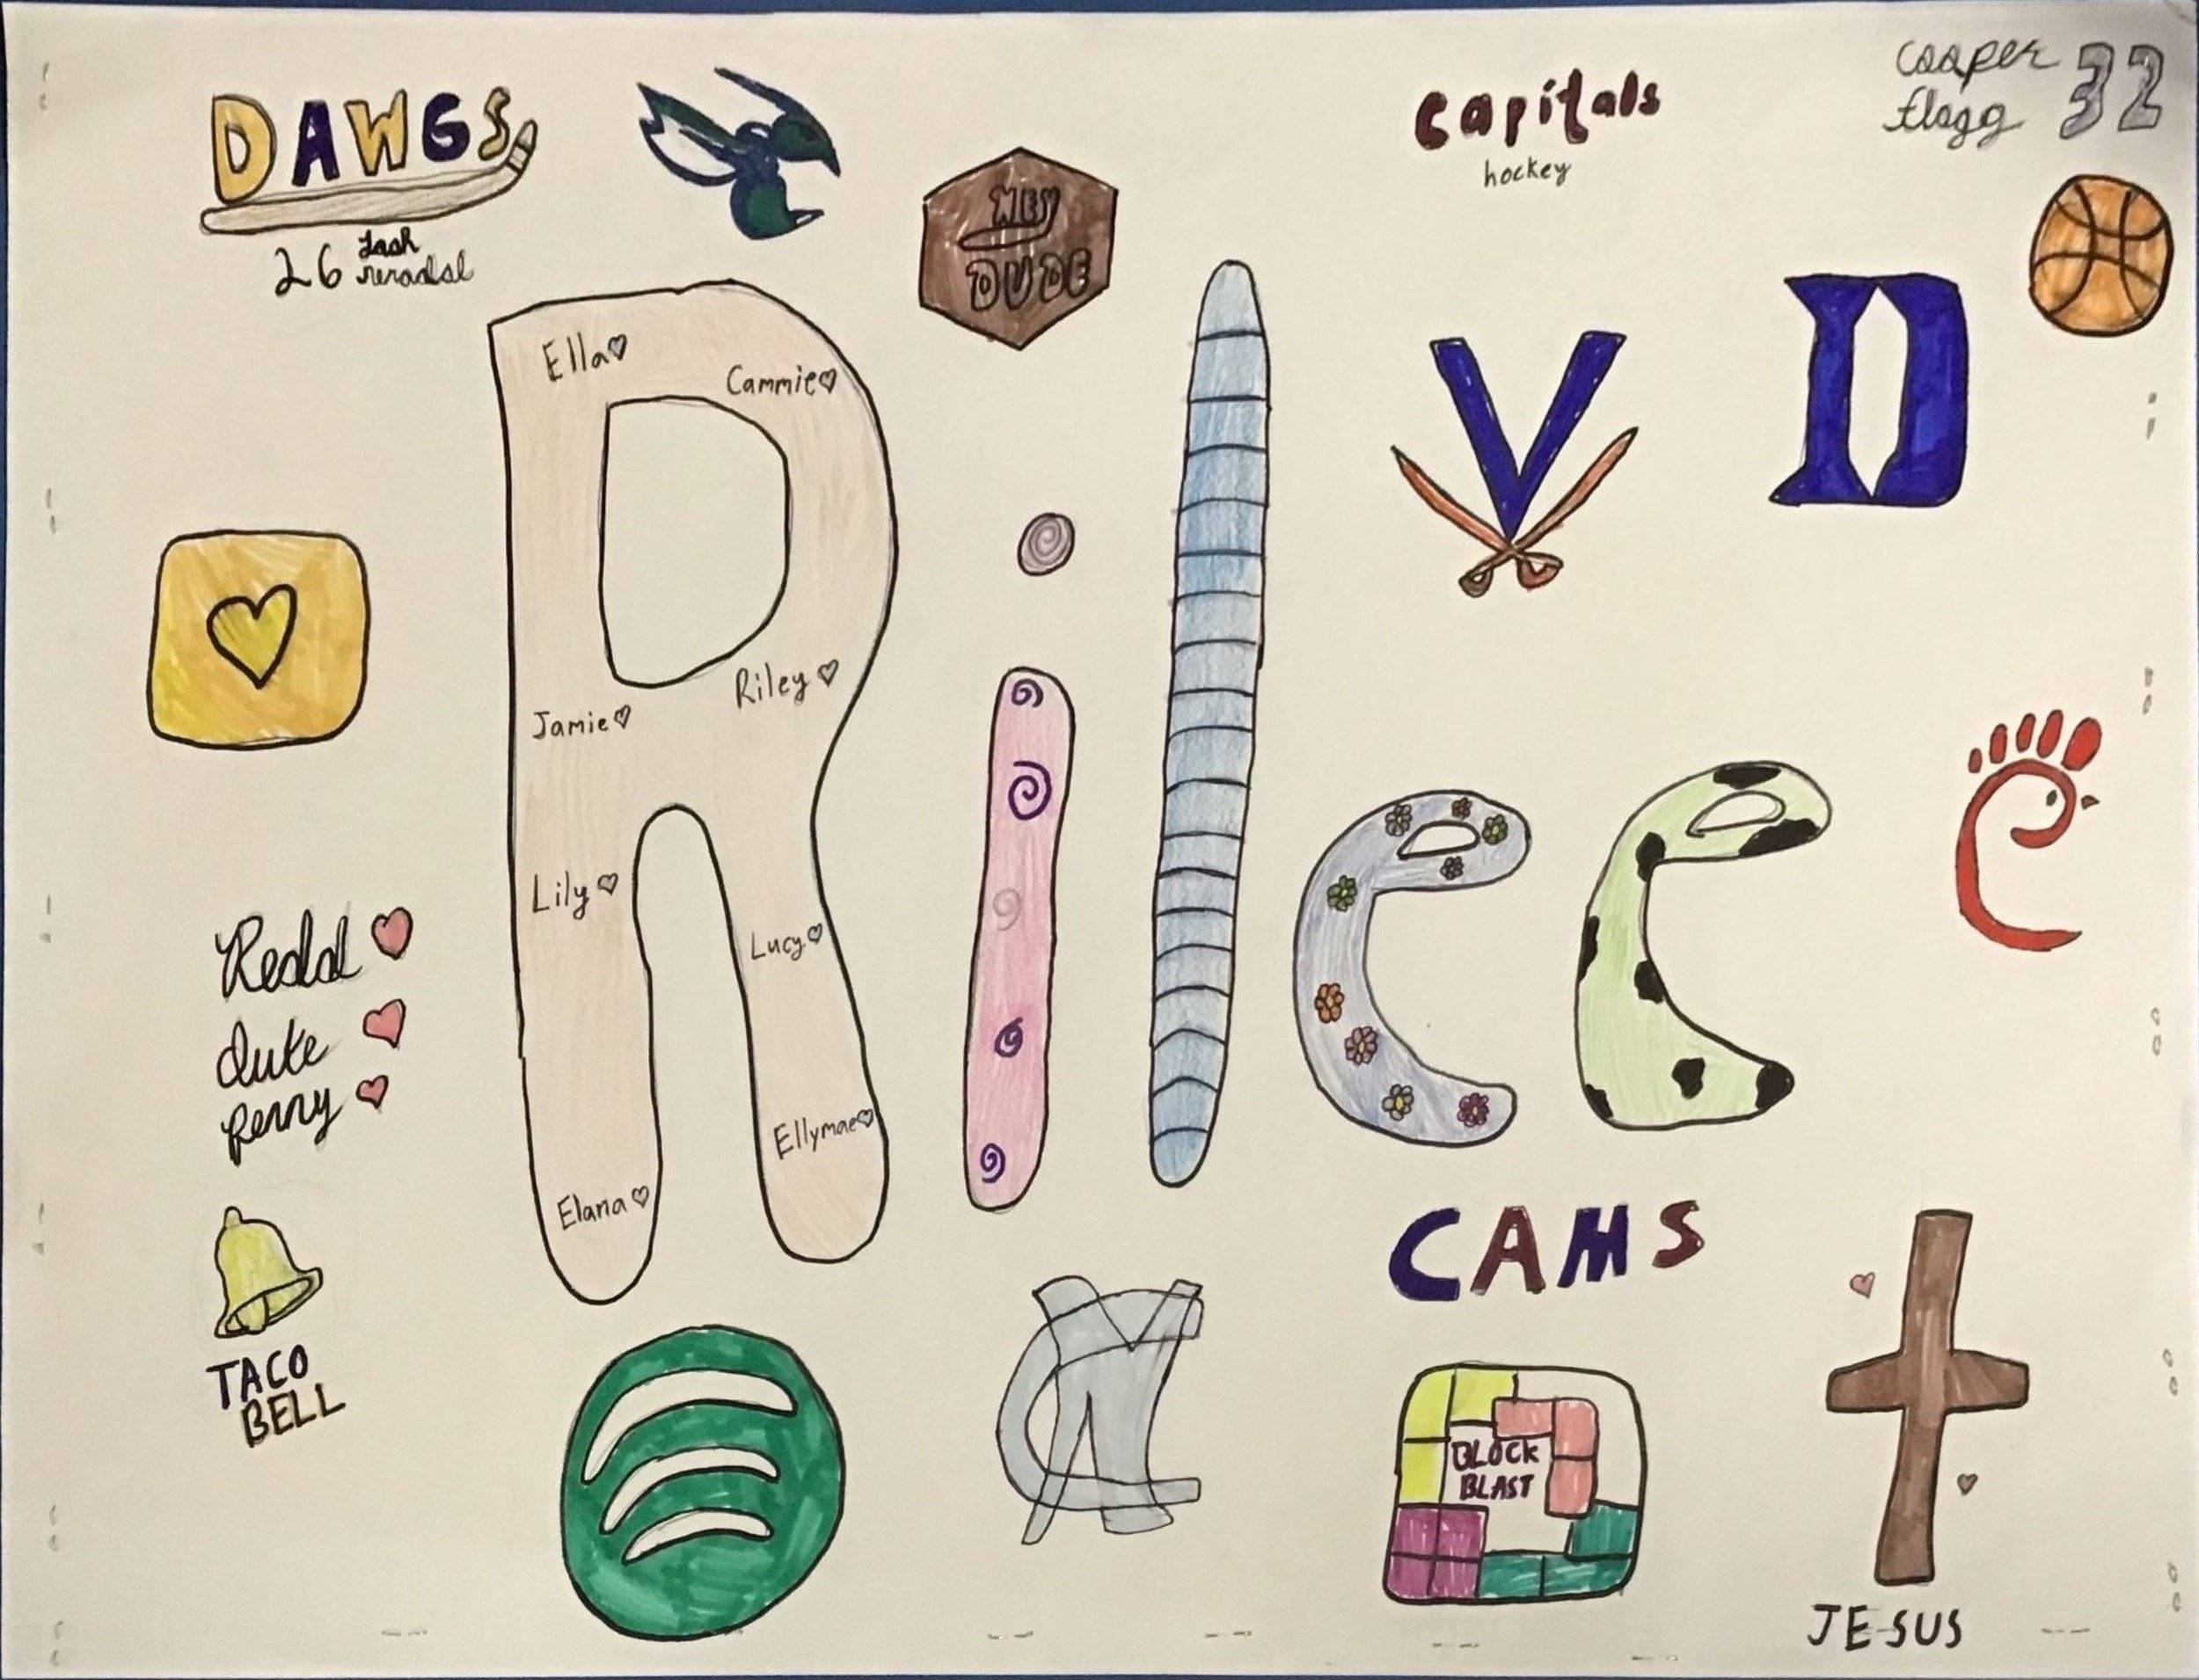 DAWGS
26
Capitals
hockey
Cooper
flagg
32
HEY
DUDE
Rilee
Ella
Cammie
Jamie
Riley
Lily
Lucy
Ellymae
Elana
V
D
C
Redd
duke
penny
TACO
BELL
CAMS
BLOCK
BLAST
JESUS